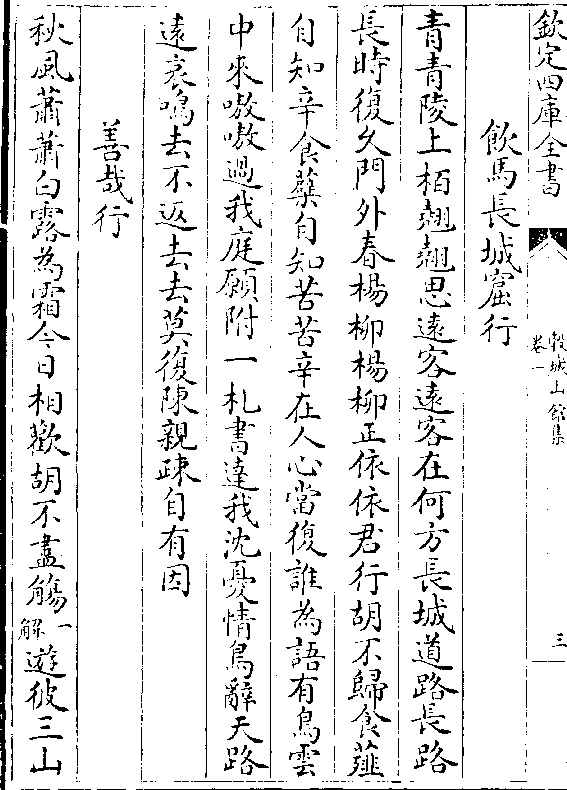 欽定四庫全書
穀城山館集
卷一
三
飲馬長城窟行
青青陵上栢翹翹思遠客遠客在何方長城道路長路
長時復久門外春楊柳楊柳正依依君行胡不歸食薤
自知辛食蘗自知苦苦辛在人心當復誰為語有鳥雲
中來嗷嗷過我庭願附一札書達我沈憂情鳥辭天路
遠哀鳴去不返去去莫復陳親疎自有因
善哉行
秋風蕭蕭白露為霜今日相歡胡不盡觴一解遊彼三山